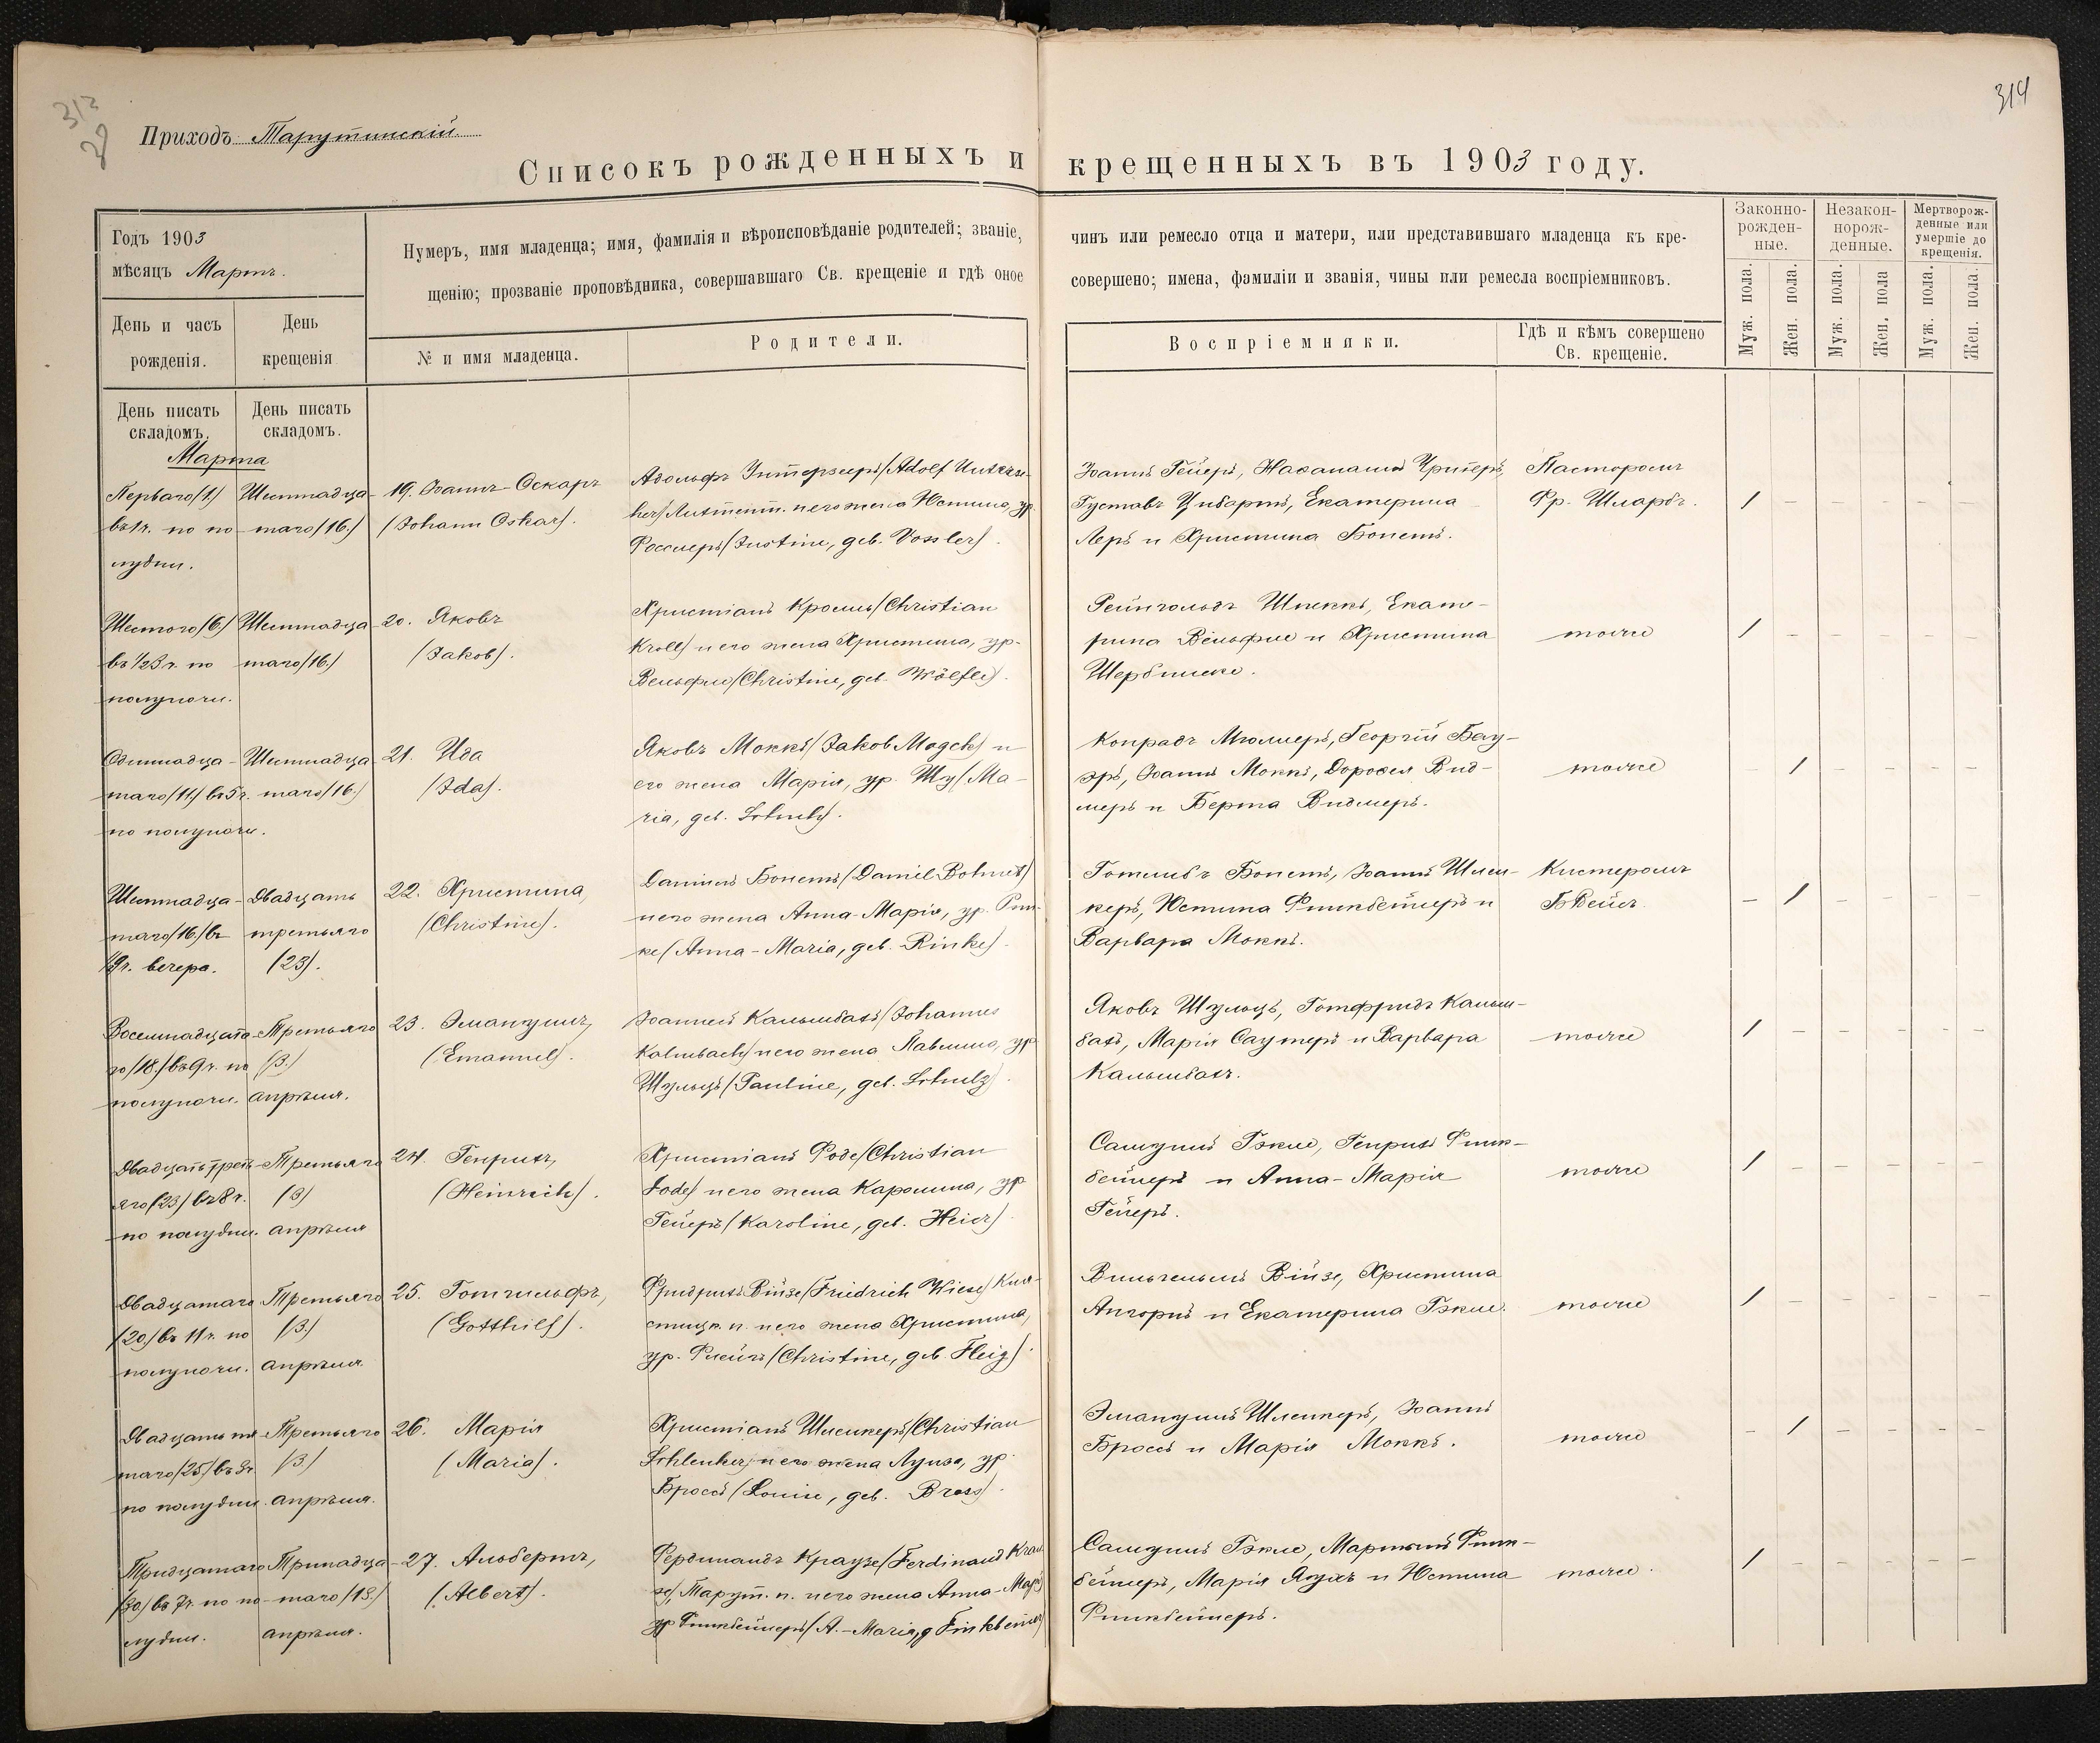 313
314
28
Приходъ Тарутинскій
Списокъ рожденныхъ и крещенныхъ въ 1903 году.
Годъ 1903
мѣсяцъ Мартъ.
Нумеръ, имя младенца; имя, фамилія и вѣроисповѣданіе родителей; званіе, чинъ или ремесло отца и матери, или представившаго младенца къ кре-
щенію; прозваніе проповѣдника, совершавшаго Св. крещеніе и гдѣ оное совершено; имена, фамиліи и званія, чины или ремесла воспріемниковъ.
Законно-
рожден-
ные.
Незакон-
норож-
денные.
Мертворож-
денные или
умершіе до
крещенія.
Муж. пола.
Жен. пола.
Муж. пола.
Жен. пола
Муж. пола.
Жен. пола.
День и часъ
рожденія.
День
крещенія
№ и имя младенца.
Родители.
Воспріемники.
Гдѣ и кѣмъ совершено
Св. крещеніе.
День писать
складомъ.
День писать
складомъ.
Марта
Перваго (1)
въ 1 ч. по по-
лудни.
Шестнадца-
таго (16.)
19. Іоаннъ-Оскаръ
(Johann Oskar).
Адольфъ (Adolf
и его жена Юстина, ур.
Фосслеръ (Justine, geb. Vossler).
Іоаннъ Гейеръ,
Густавъ Цибартъ, Екатерина
Леръ и Христина Бонетъ.
Пасторомъ
Фр. Шлардъ.
Шестого (6.)
въ ½3 ч. по
полуночи.
Шестнадца-
таго (16.)
20. Яковъ
(Jakob).
Христіанъ Кролль (Christian
Kroll) и его жена Христина, ур.
Вельфле (Christine, geb. Wölfle).
Рейнгольдъ Шпеккъ, Екате-
рина Вельфле и Христина
Щербинске.
тоже
Одиннадца-
таго (11.) въ 5 ч.
по полуночи.
Шестнадца-
таго (16.)
21. Ида
(Ida).
Яковъ Моккъ (Jakob и
его жена Марія, ур. (Ma-
ria, geb. Schulz).
Конрадъ Мюллеръ, Георгій Бау-
эръ, Іоаннъ Моккъ, Доротея Вид-
меръ и Берта Видмеръ.
тоже
Шестнадца-
таго (16.) въ
вечера.
Двадцать
третьяго
(23).
22. Христина,
(Christine).
Даніилъ Бонетъ (Daniel Bohnet)
и его жена Анна-Марія, ур. Рин-
ке (Anna-Maria, geb. Rinke).
Готлибъ Бонетъ, Іоаннъ Шлен-
керъ, Юстина Финкбейнеръ и
Варвара Моккъ.
Кистеромъ
Восемнадцата-
го (18.) въ 9 ч. по
полуночи.
Третьяго
(3.)
апрѣля.
23. Эмануилъ,
(Emanuel).
Іоаннесъ Кальмбахъ (Johannes
Kalmbach) и его жена Павлина, ур.
Шульцъ (Pauline, geb. Schulz).
Яковъ Шульцъ, Готфридъ Кальм-
бахъ, Марія Саутеръ и Варвара
Кальмбахъ.
тоже
Двадцать треть-
яго (23) въ 8 ч.
по полудни.
Третьяго
(3)
апрѣля
24. Генрихъ,
(Heinrich).
Христіанъ (Christian
и его жена Каролина, ур.
Гейеръ (Karoline, geb. Heier).
Самуилъ Гэкле, Генрихъ Финк-
бейнеръ и Анна-Марія
Гейеръ.
тоже
Двадцатаго
(20) въ 11 ч. по
полуночи.
Третьяго
(3.)
апрѣля.
25. Готгильфъ,
(Gotthilf).
Фридрихъ Визе (Friedrich Wiese) Кля-
стицк. п. и его жена Христина,
ур. Флейгъ (Christine, geb. Fleig).
Вильгельмъ Визе, Христина
и Екатерина Гэкле.
тоже
Двадцать пя-
таго (25) въ 3 ч.
по полудни.
Третьяго
(3.)
апрѣля.
26. Марія
(Maria).
Христіанъ Шленкеръ (Christian
Schlenker) и его жена Луиза, ур.
Броссъ (Louise, geb. Bross).
Эмануилъ Шленкеръ, Іоаннъ
Броссъ и Марія Моккъ.
тоже
Тридцатаго
(30.) въ 7 ч. по по-
лудни.
Тринадца-
таго (13.)
апрѣля.
27. Альбертъ,
(Albert).
Фердинандъ Краузе (Ferdinand Krau-
se), Тарут. п. и его жена Анна-Марія
ур. Финкбейнеръ (A.-Maria, g. Finkbeiner)
Самуилъ Гэкле, Мартинъ Финк-
бейнеръ, Марія и Юстина
Финкбейнеръ.
тоже.